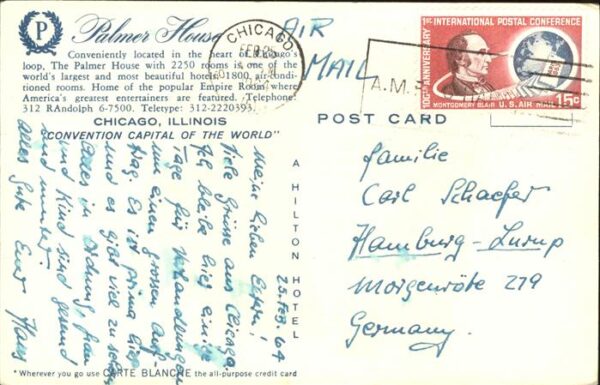 P
Palmer House
Conveniently located in the heart of Chicago's
loop, The Palmer House with 2250 rooms is one of the
world's largest and most beautiful hotels. 1800 air-condi-
tioned rooms. Home of the popular Empire Room where
America's greatest entertainers are featured. Telephone:
312 RAndolph 6-7500. Teletype: 312-2220393.
CHICAGO, ILLINOIS
"CONVENTION CAPITAL OF THE WORLD"
AIR
MAIL
CHICAGO
FEB 25
A.M.
100th ANNIVERSARY
1st INTERNATIONAL POSTAL CONFERENCE
MONTGOMERY BLAIR U.S. AIR MAIL 15c
POST CARD
A HILTON HOTEL
25. Feb. 64
Meine lieben Eltern!
Viele Grüsse aus Chicago.
Ich bleibe hier einige
Tage für Verhandlungen
um einen grossen Auf-
trag. Es ist prima hier
und es gibt viel zu sehen.
Alles in Ordnung, Frau
und Kind sind gesund
und munter.
Alles Gute Euer Hans
Familie
Carl Schaefer
Hamburg-Lurup
Morgenröte 279
Germany.
* Wherever you go use CARTE BLANCHE the all-purpose credit card